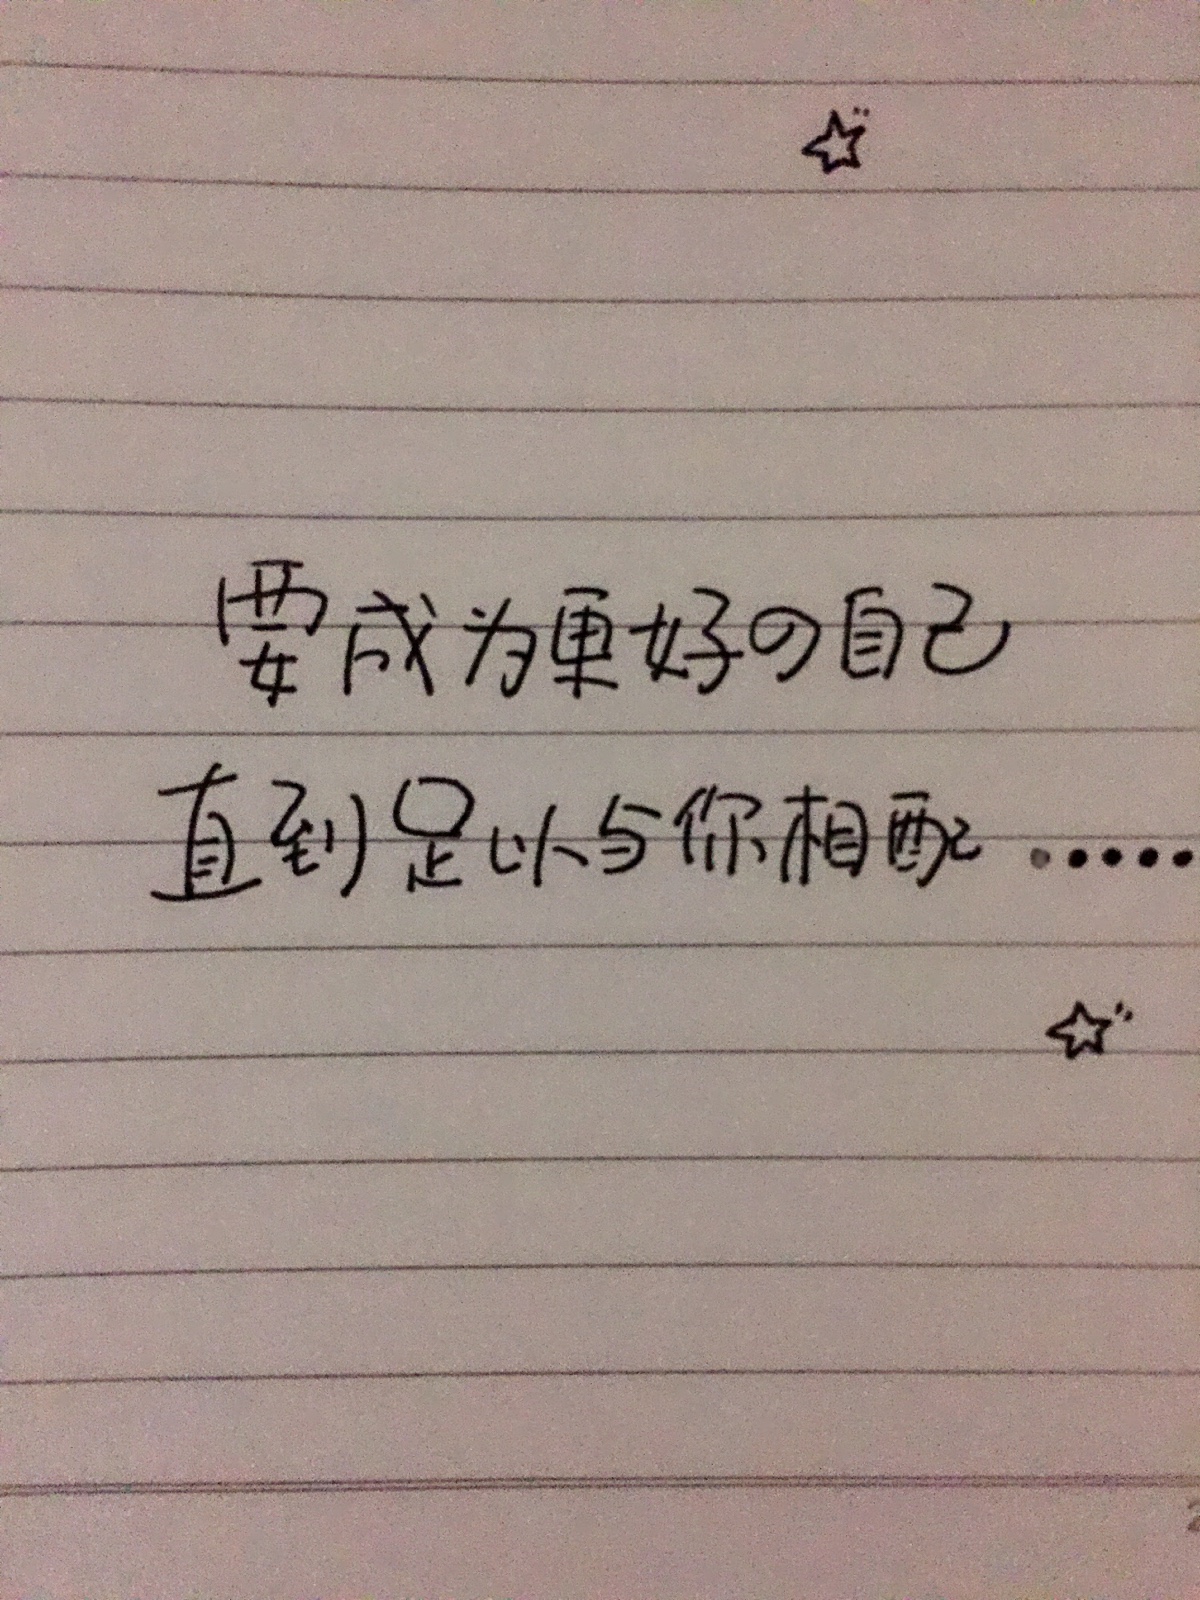 要成为更好の自己
直到足以与你相配·····